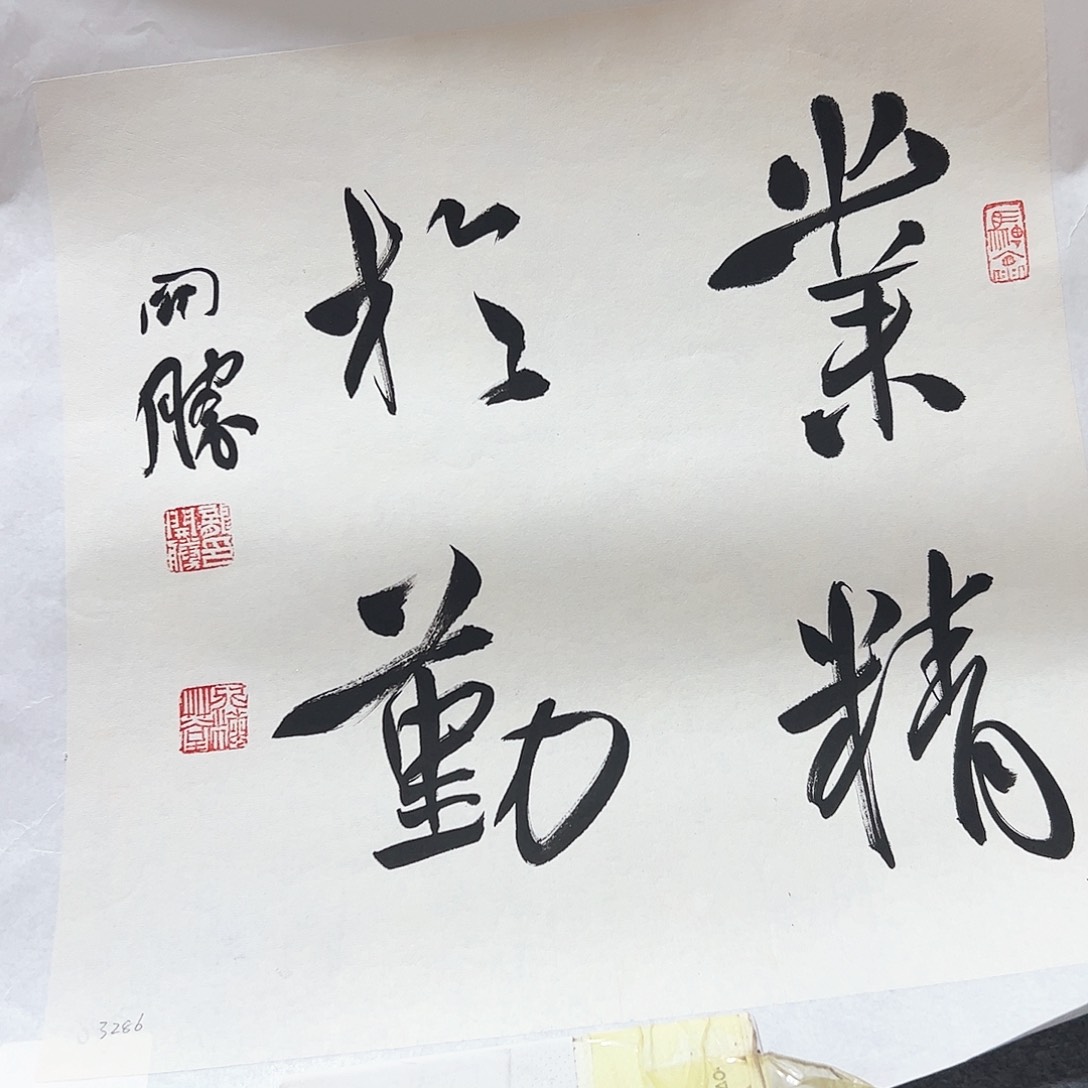 業精
於勤
開勝
3286